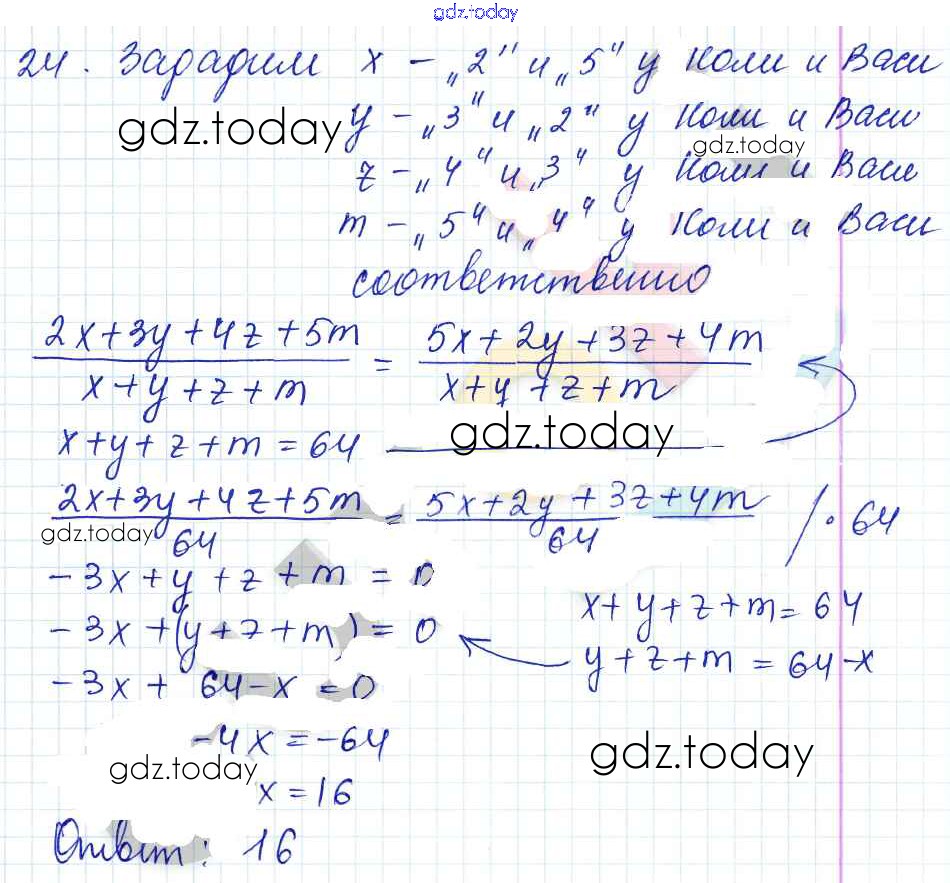 gdz.today
24. Зададим x – „2" и „5" у Коли и Васи
y – „3" и „2" у Коли и Васи
gdz.today
gdz.today
z – „4" и „3" у Коли и Васи
m – „5" и „4" у Коли и Васи
соответственно
(2x+3y+4z+5m)/(x+y+z+m) = (5x+2y+3z+4m)/(x+y+z+m)
x+y+z+m=64
gdz.today
(2x+3y+4z+5m)/64 = (5x+2y+3z+4m)/64 /·64
gdz.today
-3x+y+z+m=0
x+y+z+m=64
-3x+(y+z+m)=0
y+z+m=64-x
-3x+64-x=0
-4x=-64
gdz.today
gdz.today
x=16
Ответ: 16